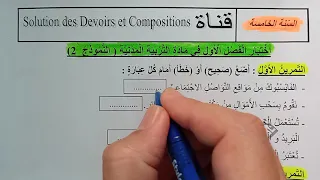 Solution des Devoirs et Compositions قناة
السنة الخامسة
اختبار الفصل الأول في مادة التربية المدنية ( النموذج 2)
التمرين الأول : أضع (صحيح) أو (خطأ) أمام كل عبارة :
- الفايسبوك من مواقع التواصل الاجتماعي ............
- نقوم بسحب الأموال من
- تستعمل
- البريد و
- تعتبر